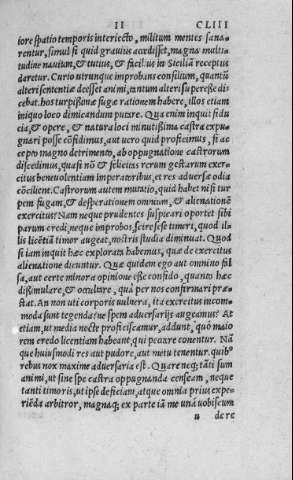 II CLIII
iore spatio temporis interiecto, militum mentes sana-
rentur, simul si quid grauius accidisset, magna multi-
tudine nauium, & tutius, & facilius in Siciliã receptus
daretur. Curio utrunque improbans consilium, quantũ
alteri sententiæ deesset animi, tantum alteri superesse di-
cebat. hos turpißimæ fugæ rationem habere, illos etiam
iniquo loco dimicandum putare. Qua enim inquit fidu-
cia, & opere, & natura loci munitißima castra expu-
gnari posse cõfidimus, aut uero quid proficimus, si ac-
cepto magno detrimento, ab oppugnatione castrorum
discedimus, quasi nõ & felicitas rerum gestarum exer-
citus beneuolentiam imperatoribus, et res aduersæ odia
cõcilient. Castrorum autem mutatio, quid habet nisi tur
pem fugam, & desperationem omnium, & alienationẽ
exercitus? Nam neque prudentes suspicari oportet sibi
parum credi, neque improbos scire sese timeri, quod il-
lis licẽtiã timor augeat, nostris studia diminuat. Quod
si iam inquit hæc explorata habemus, quæ de exercitus
alienatione dicuntur. Quæ quidem ego aut omnino fal
sa, aut certe minora opinione esse confido, quanto hæc
dißimulare, & occulere, quã per nos confirmari præ-
stat. An non uti corporis uulnera, ita exercitus incom-
moda sunt tegenda: ne spem aduersarijs augeamus? At
etiam, ut media nocte proficiscamur, addunt, quò maio
rem credo licentiam habeant, qui peccare conentur. Nã
que huiusmodi res aut pudore, aut metu tenentur. quibꝰ
rebus nox maxime aduersaria est. Quare neq; tãti sum
animi, ut sine spe castra oppugnanda censeam, neque
tanti timoris, ut ipse deficiam, atque omnia prius expe-
riẽda arbitror, magnaq; ex parte iã me unà uobiscum
u de re